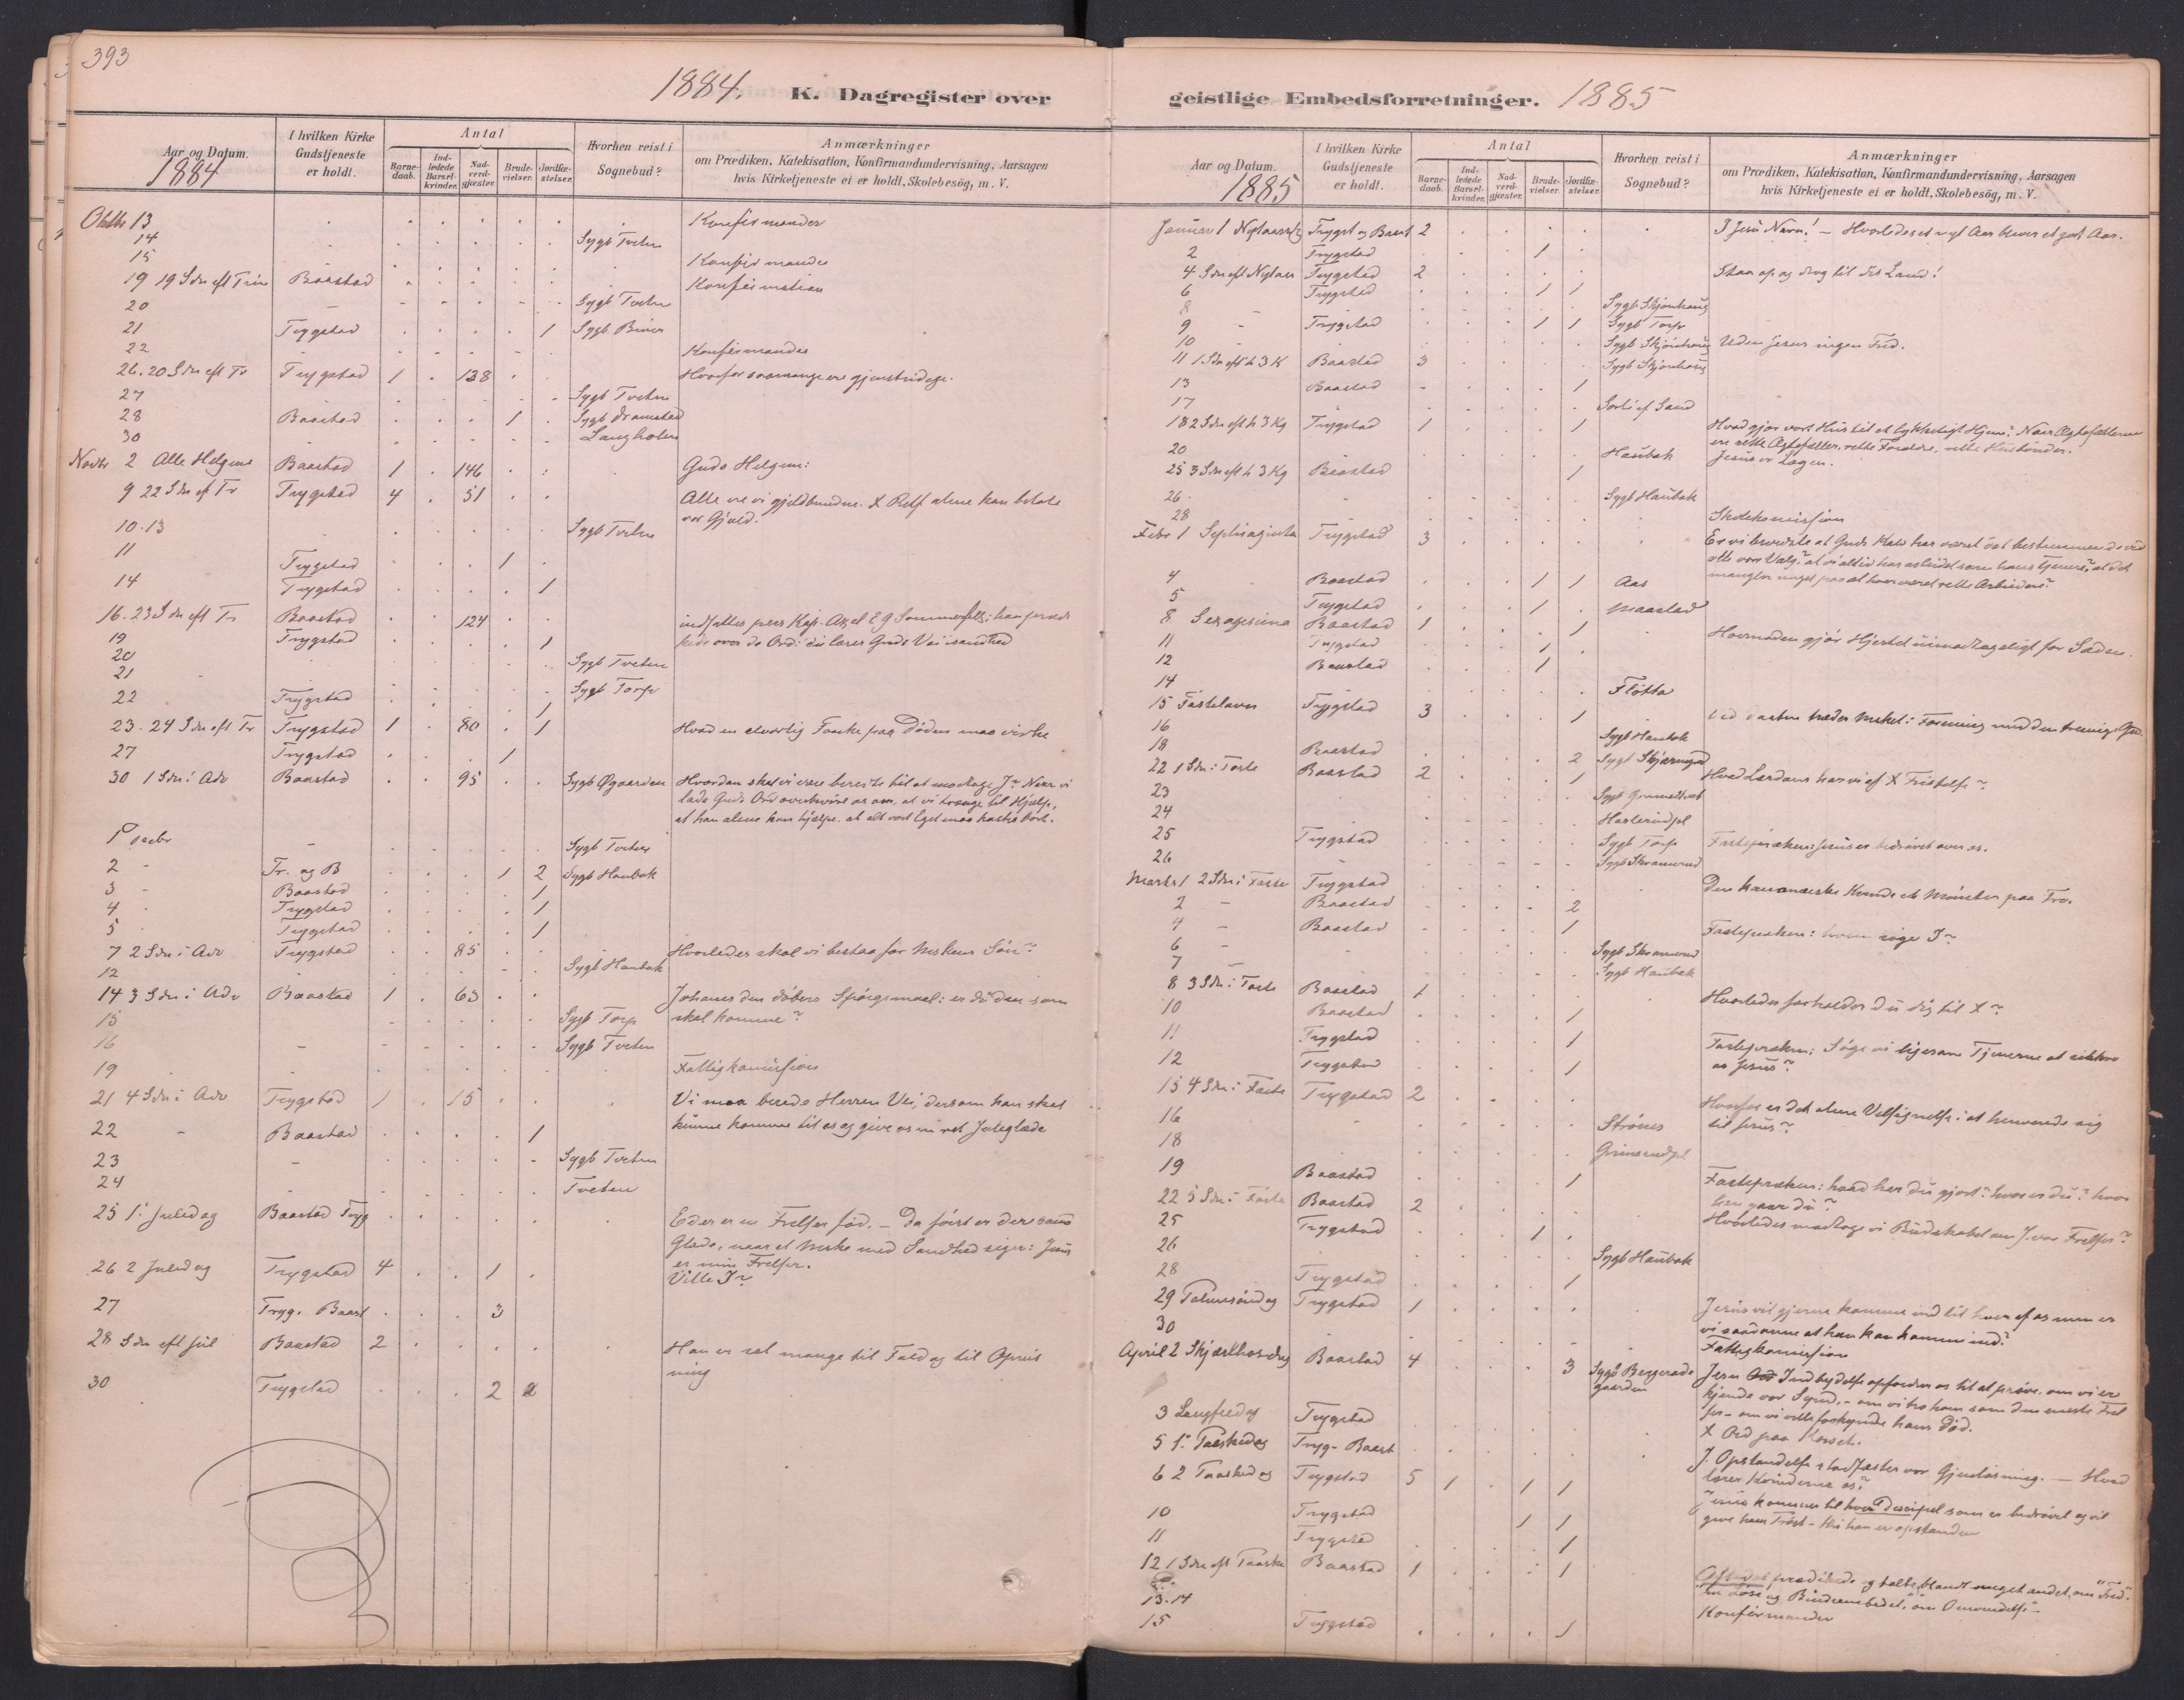 393
1884. K. Dagregister over
Aar og Datum. 1884
I hvilken Kirke Gudstjeneste er holdt.
Antal
Barnedaab. Indledede Barselkvinder. Nadverdgjæster. Brudevielser. Jordfæstelser.
Hvorhen reist i Sognebud?
Anmærkninger
om Prædiken, Katekisation, Konfirmandundervisning, Aarsagen
hvis Kirketjeneste ei er holdt, Skolebesög, m. V.
Oktbr 13 Konfirmander
14 Sygb Tveten
15 Konfirmander
19 19 Sdn eft Trin Baastad Konfirmation
20 Sygb Tveten
21 Trygstad 1 Sygb
22 Konfirmander
26. 20 Sdn eft Tr Trygstad 1 138 Hvorfor saamange ere gjenstridige.
27 Sygb Tveten
28 Baastad 1 Sygb Dramstad
30 Langholen
Novbr 2 Alle Helgens Baastad 1 146 Guds Helgen:
9 22 Sdn ef Tr Trygstad 4 51 Alle ere vi gjeldbundne. X alene kan betale
vor Gjæld.
10-13 Sygb Tveten
11 Trygstad 1
14 Trygstad 1
16. 23 Sdn eft Tr Baastad 124 indsattes pers Kap. Axel E G Sommerfelt; han prædi
kede over de Ord: du lærer Guds Vei i sandhed
19 Trygstad 1
20 Sygb Tveten
21 Sygb Torp
22 Trygstad 1
23. 24 Sdn eft Tr Trygstad 1 80 1 Hvad en alvorlig Tanke paa Døden maa virke
27 Trygstad 1
30 1 Sdn i Adv Baastad 95 Sygb Øgaarden Hvordan skal vi være beredte til at modtage J? Naar vi
lade Guds Ord overbevise os om, at vi trænge til Hjælp,
at han alene kan hjælpe. at alt vort Eget maa kastes bort.
1 Decbr Sygb Tveten
2 - Tr. og B 1 2 Sygb Haubak
3 - Baastad 1
4 Trygstad 1
5 Trygstad 1
7 2 Sdn i Adv Trygstad 85 Hvorledes skal vi bestaa for Mskens Søn?
12 Sygb Haubak
14 3 Sdn i Adv Baastad 1 63 Johannes den døbers Spørgsmaal: er du den som
skal komme?
15 Sygb Torp
16 Sygb Tveten
19 Fattigkomission
21 4 Sdn i Adv Trygstad 1 15 Vi maa berede Herren Vei, dersom han skal
kunne komme til os og give os en ret Juleglæde
22 - Baastad 1
23 Sygb Tveten
24 Tveten
25 1. Juledag Baastad Tryg Eder er en Frelser fød. - Da først er der sand
Glæde, naar et Mske med Sandhed siger: Jesus
er min Frelser.
26 2 Juledag Trygstad 4 1 Ville I?
27 Tryg. Baast 3
28 Sdn eft Jul Baastad 2 Han er sat mange til Fald og til Opreis
ning
30 Trygstad 2
geistlige Embedsforretninger. 1885
Aar og Datum. 1885
I hvilken Kirke Gudstjeneste er holdt.
Antal
Barnedaab. Indledede Barselkvinder. Nadverdgjæster. Brudevielser. Jordfæstelser.
Hvorhen reist i Sognebud?
Anmærkninger
om Prædiken, Katekisation, Konfirmandundervisning, Aarsagen
hvis Kirketjeneste ei er holdt, Skolebesög, m. V.
Januar 1 Nytaarsdg Trygst og Baast 2 I Jesu Navn! - Hvorledes et nyt Aar bliver et godt Aar.
2 Trygstad 1
4 Sdn eft Nytaar Trygstad 2 Staa op og drag til dit Land!
6 Trygstad 1 1
8 Sygb Skjønhaug
9 - Trygstad 1 1 Sygb Torp
10 Sygb Skjønhaug Uden Jesus ingen Fred.
11 1 Sdn eft h 3 K Baastad 3 Sygb Skjønhaug
13 Baastad 1
17
18 2 Sdn eft h 3 Kg Trygstad 1 1 Hvad gjør vort Hus til et lykkeligt Hjem? Naar Ægtefællerne
ere rette Ægtefæller, rette Forældre, rette Husbonder.
20 Haubak
25 3 Sdn eft h 3 Kg Baastad 1 Jesus er Lægen.
26 Sygb Haubak
28 Skolekomission
Febr 1 Septuagesima Trygstad 3 Er vi beredte at Guds Kald har været det bestemmende ved
alle vore Valg? at vi altid har arbeidet som hans Tjenere? at det
mangler noget paa at have været rette Arbeidere?
4 Baastad 1 1 Aas
5 Trygstad 1 Maastad
8 Sexagesima Baastad 1 1 Hovmoden gjør Hjertet uimodtageligt for Sæden.
11 Trygstad 1
12 Baastad 1
14 Fløtta
15 Fastelavn Trygstad 3 1 Ved Daaben træder Msket i Forening med den treenige Gud
16 Sygb Haubak
18 Baastad 2 Sygb Skjærngad
22 1 Sdn i Faste Baastad 2 1 Hvad Lærdom har vi af X Fristelse?
23
24 Haslerudpl
25 Trygstad Sygb Torp Fastepræken: Jesus er bedrøvet over os.
26 Sygb Skramrud
Marts 1 2 Sdn i Faste Trygstad Den kananæiske Kvinde et Mønster paa Tro.
2 - Baastad 2
4 - Baastad 1 Fastepræken: hvem søge I?
6 - Sygb Skramrud
7 Sygb Haubak
8 3 Sdn i Faste Baastad 1 Hvorledes forholder du dig til X?
10 Baastad 1
11 Trygstad 1
12 Trygstad 1 Fastepræken: Søge vi ligesom Tjenerne at sikkre
os Jesus?
15 4 Sdn i Faste Trygstad 2 Hvorfor er det alene Velsignelse i at henvende sig
til Jesus?
16 Strønes
18 Grimsrudpl
19 Baastad 1 Fastepræken: hvad har du gjort? hvor er du? hvor
hen gaar du?
22 5 Sdn i Faste Baastad 2 Hvorledes modtage vi Budskabet om J. vor Frelser?
25 Trygstad 1
26 Sygb Haubak
28 Trygstad 1
29 Palmesøndag Trygstad 1 Jesus vil gjerne komme ind til hver af os men er
vi saadanne at han kan komme ind?
30 Fattigkomission
April 2 Skjærthorsdag Baastad 4 3 Sygb Bergerudsgaarden Jesu Indbydelse opfordrer os til at prøve, om vi er
kjende vor Synd, - om vi tro ham som den eneste Frel
ser - om vi ville forkynde hans Død.
3 Langfredag Trygstad X Ord paa Korset.
5 1. Paaskedag Tryg- Baast J. Opstandelse stadfæster vor Gjenløsning. - Hvad
lærer Kvinderne os?
6 2 Paaskedag Trygstad 5 1 1 1 Jesus kommer til hver Discipel som er bedrøvet og vil
give ham Trøst - thi han er opstanden
10 Trygstad 1 1
11 Trygstad 1
12 1 Sdn eft Paaske Baastad 1 1 prædikede og talte blandt meget andet, om "Fred"
om Løse og Bindeembedet, om Omvendelse -
13-14 Konfirmander
15 Trygstad 1